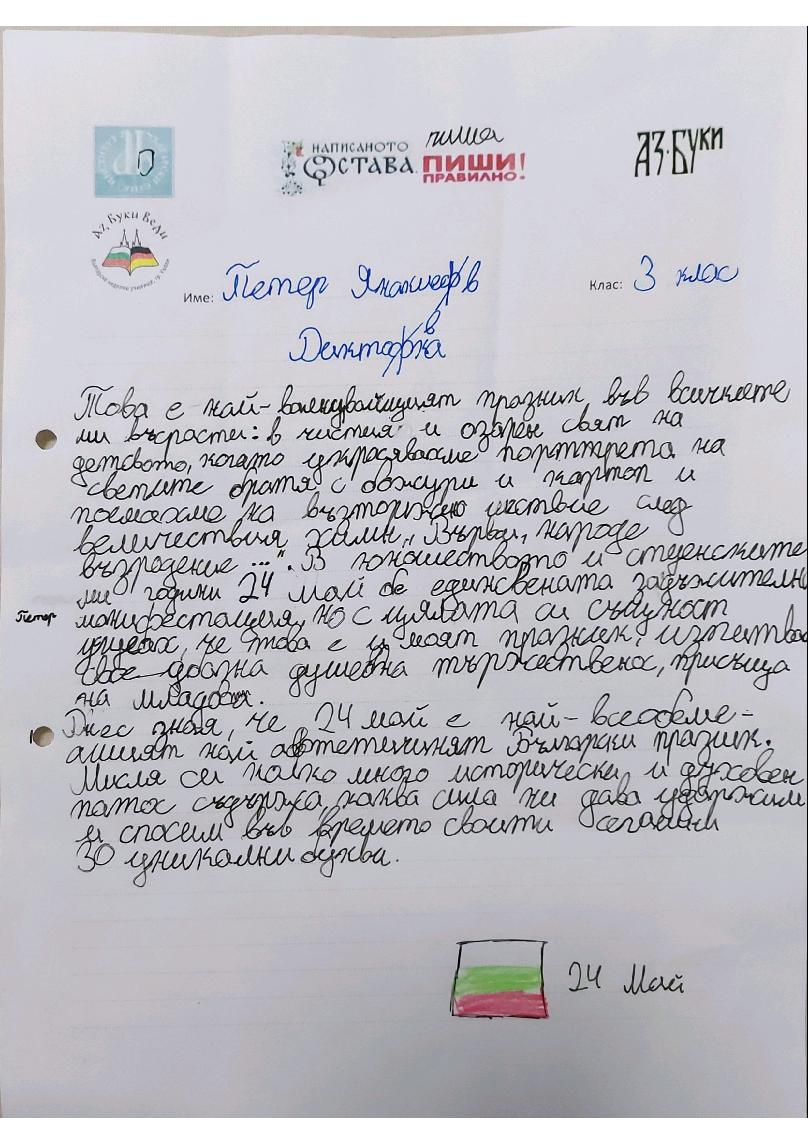 НАПИСАНОТО
ОСТАВА.
пиша
ПИШИ
ПРАВИЛНО!
АЗ·БУКИ
Аз, Буки Веди
Име: Петер
Клас: 3 клас
Това е най- празник във всичките
ми възрасти: в чистия и озарен свят на
детството, когато украсявахме портрета на
светлите братя с божури и картоп и
поемахме на възторжно шествие след
величествия химн „Върви, народе
възродение ...". В юношеството и студенските
ми години 24 май бе единсвената задължителн
Петер
манифестация, но с цялата си същност
усещах, че това е и моят празник, изпитвах
душевна тържественос, присъща
на младостта.
Днес зная, че 24 май е най-всеобеме-
ащият най Български празник.
Мисля си колко много исторически и духовен
патос съдържа, каква сила ни дава удържим
и спосим във времето своити
30 уникални буква.
24 Май